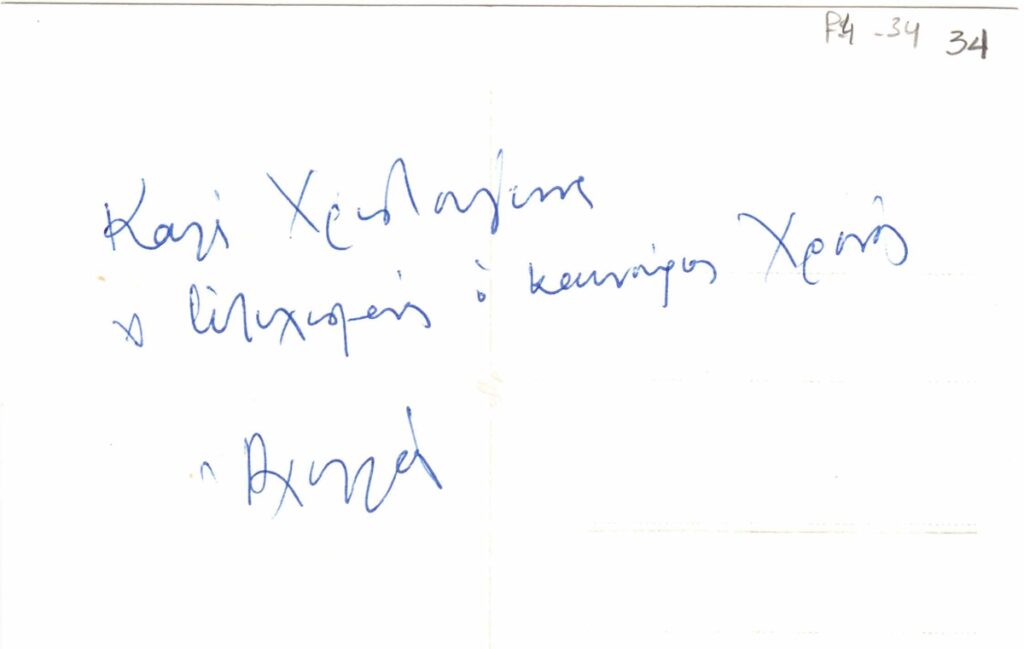 P4-34 34
Καλά Χριστούγεννα
κ Εὐτυχισμένος ὁ καινούργιος Χρόνος